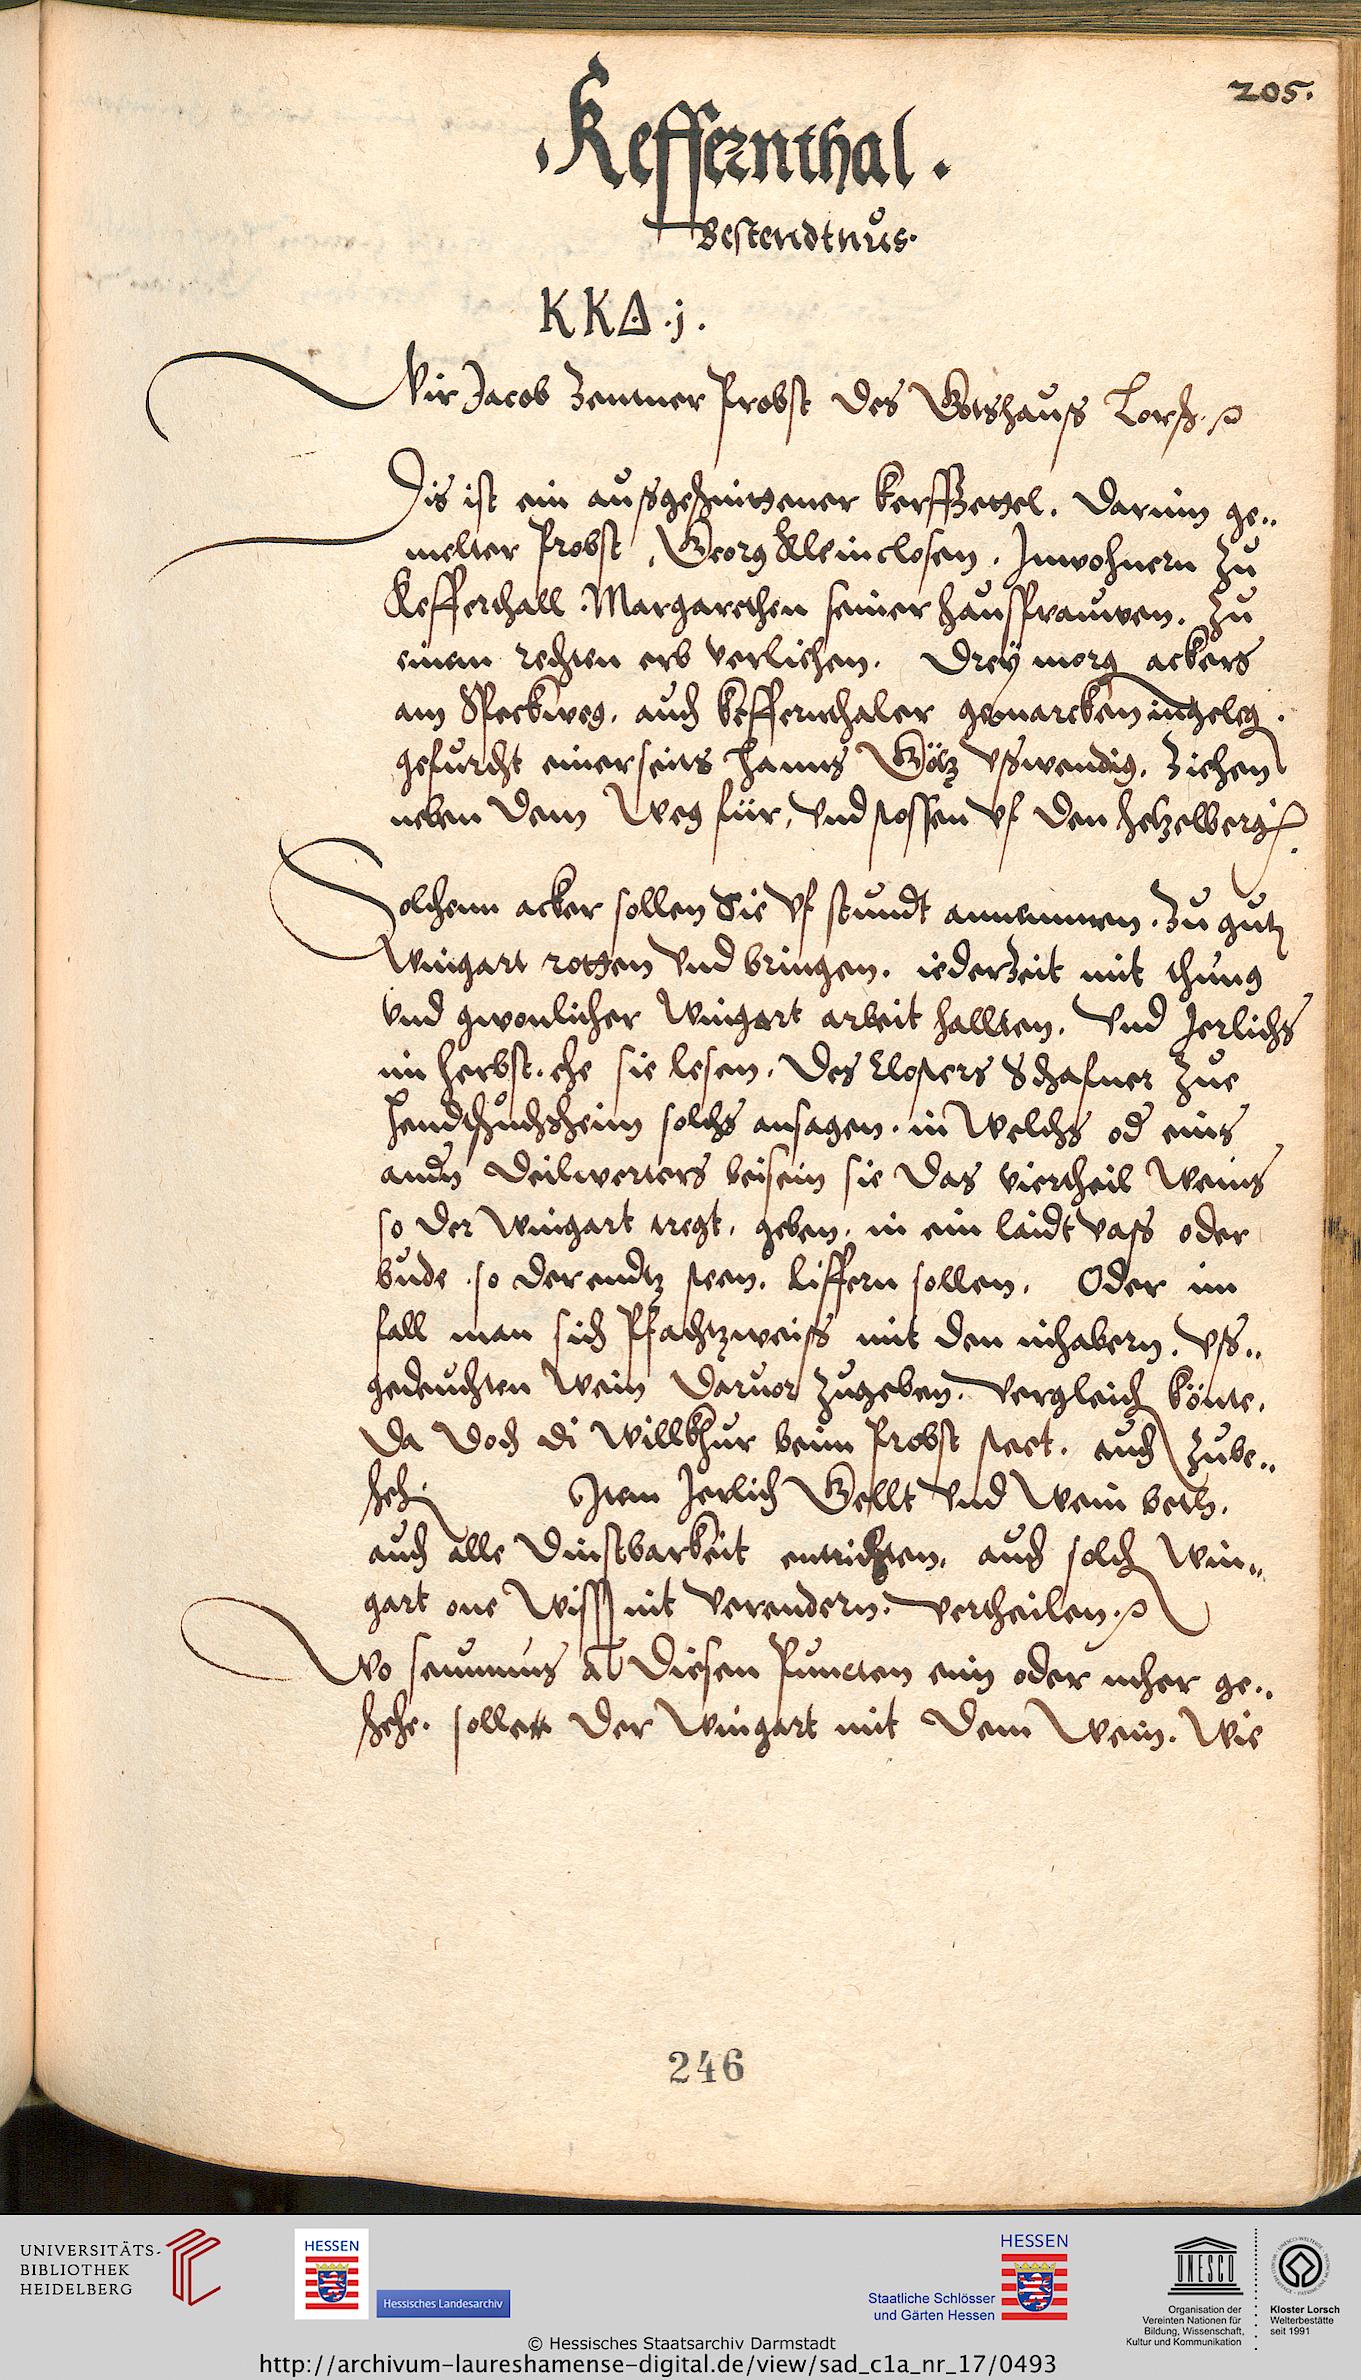 205.
Keffernthal.
Bestendtnus.
K K Δ .j.
Wir Jacob Zentner Probst des Gotshauß Lorsch
Dis ist ein außgeschnittener kerffzettel. Darinn ge„
melter Probst, Georg Kleinclosen. Inwohnern zu
Kefferthall. Margarethen seiner haußfrauwen. zu
einem rechten erb verlichen. Drey morg ackers
am Speckweg. auch keffernthaler gemarcken ingeleg.
gefurcht einerseits Hanns Götz vßwendig. Ziehen
neben dem Weg für, vnd stossen vf den hetzelberg
Solchenn acker sollen Sie vf stundt annemmen. Zu gutz
Wingart rotten vnd bringen. iederzeit mit thung
vnd gwonlicher Wingart arbeit hallten. Vnd Jerlichs
im herbst. ehe sie lesen. des Closters Schafner Zue
Hendschuchsheim solchs ansagen. in Welchs od eins
andn Deilwerters beisein sie das viertheil Weins
so der Wingart tregt. geben. in ein laidt vass oder
bude. so derendtz steen. liffern sollen. Oder im
fall man sich Pfachtzweiß mit den inhabern. vß„
gedeuchten Wein daruor zugeben. vergleich könte.
Da doch di Willkhur beim Probst steet. auch Zube„
sheh. Item Jerlich Gellt vnd Wein beth.
auch alle Dinstbarkeit entrichten. auch solch Win„
gart one Wiss nit verendern. vertheilen.
Wo seumnus a diesen Puncten einn oder meher ge„
schehe. sollett der Wingart mit dem Wein. Wie
246
UNIVERSITÄTS-
BIBLIOTHEK
HEIDELBERG
HESSEN
Hessisches Landesarchiv
HESSEN
Staatliche Schlösser
und Gärten Hessen
UNESCO
Organisation der
Vereinten Nationen für
Bildung, Wissenschaft,
Kultur und Kommunikation
Kloster Lorsch
Welterbestätte
seit 1991
© Hessisches Staatsarchiv Darmstadt
http://archivum-laureshamense-digital.de/view/sad_c1a_nr_17/0493